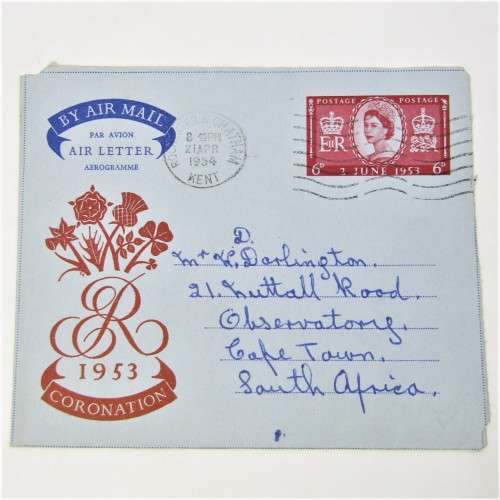 BY AIR MAIL
PAR AVION
AIR LETTER
AEROGRAMME
CHATHAM
21 APR
1954
KENT
POSTAGE POSTAGE
E II R
6D 2 JUNE 1953 6D
D.
Mr L. Darlington.
21. Nuttall Road.
Observatory.
Cape Town.
South Africa.
ER
1953
CORONATION